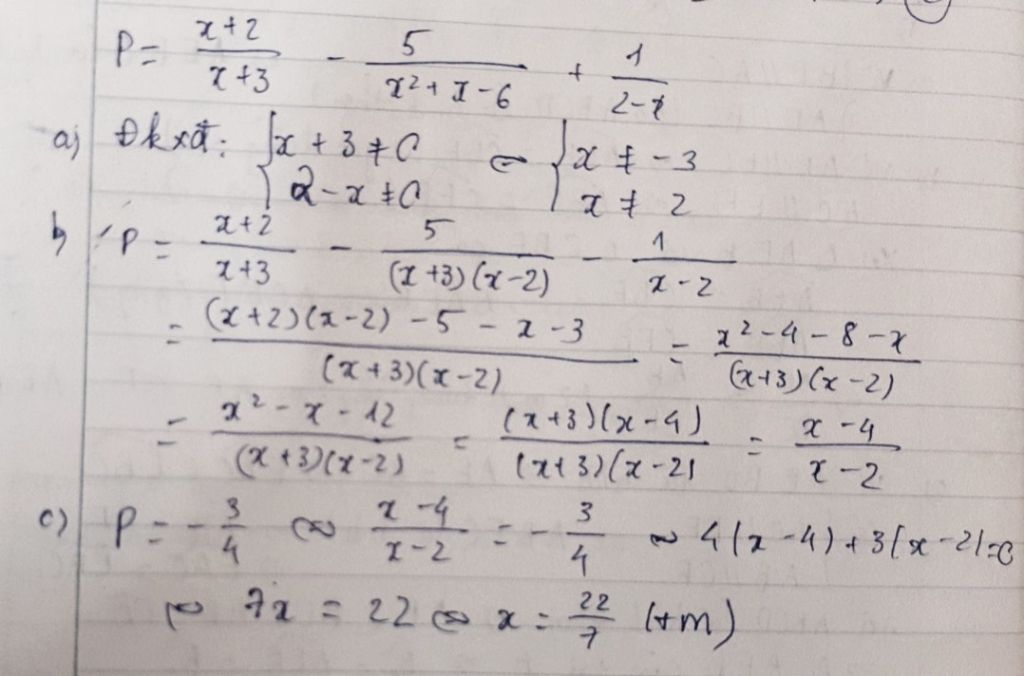 P = \frac{x+2}{x+3} - \frac{5}{x^2+x-6} + \frac{1}{2-x}
a) Đkxđ: { x + 3 ≠ 0 ⇔ { x ≠ -3
2 - x ≠ 0 x ≠ 2
b) P = \frac{x+2}{x+3} - \frac{5}{(x+3)(x-2)} - \frac{1}{x-2}
= \frac{(x+2)(x-2) - 5 - x - 3}{(x+3)(x-2)} = \frac{x^2-4-8-x}{(x+3)(x-2)}
= \frac{x^2-x-12}{(x+3)(x-2)} = \frac{(x+3)(x-4)}{(x+3)(x-2)} = \frac{x-4}{x-2}
c) P = -\frac{3}{4} ⇔ \frac{x-4}{x-2} = -\frac{3}{4} ⇔ 4(x-4)+3(x-2)=0
⇔ 7x = 22 ⇔ x = \frac{22}{7} (tm)